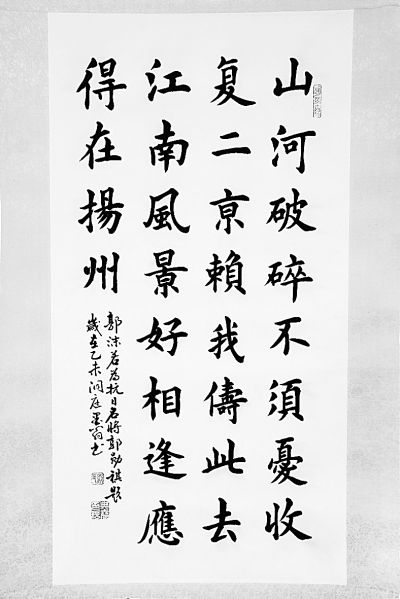 山河破碎不須憂收
复二京賴我儔此去
江南風景好相逢應
得在揚州
郭沫若为抗日名將郭勛祺題
歲在乙未洞庭墨翁书